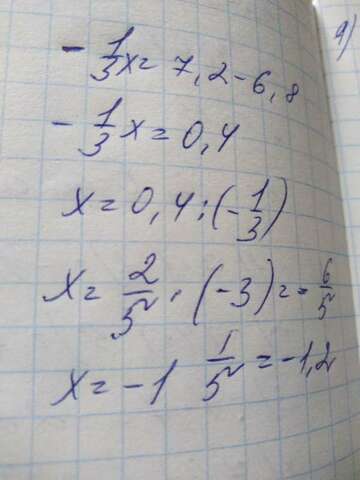 9)
-1/3x = 7,2 - 6,8
-1/3x = 0,4
x = 0,4 : (-1/3)
x = 2/5 · (-3) = -6/5
x = -1 1/5 = -1,2